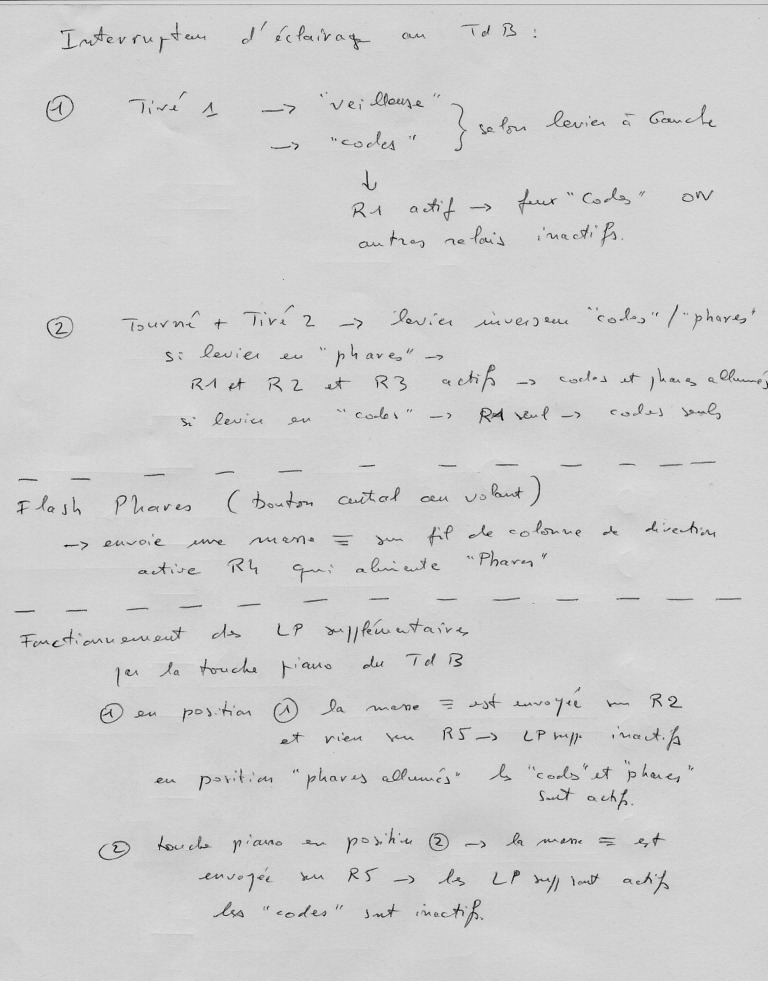 Interrupteur d'éclairage au TdB :
① Tiré 1 → "veilleuse"
→ "codes" } selon levier à Gauche
↓
R1 actif → feux "Codes" ON
autres relais inactifs.
② Tourné + Tiré 2 → levier inverseur "codes" / "phares"
si levier en "phares" →
R1 et R2 et R3 actifs → codes et phares allumés
si levier en "codes" → R1 seul → codes seuls
Flash Phares (bouton central au volant)
→ envoie une masse ≡ sur fil de colonne de direction
active R4 qui alimente "Phares"
Fonctionnement des LP supplémentaires
par la touche piano du TdB
① en position ① la masse ≡ est envoyée sur R2
et rien sur R5 → LP supp. inactifs
en position "phares allumés" les "codes" et "phares"
sont actifs.
② touche piano en position ② → la masse ≡ est
envoyée sur R5 → les LP supp sont actifs
les "codes" sont inactifs.